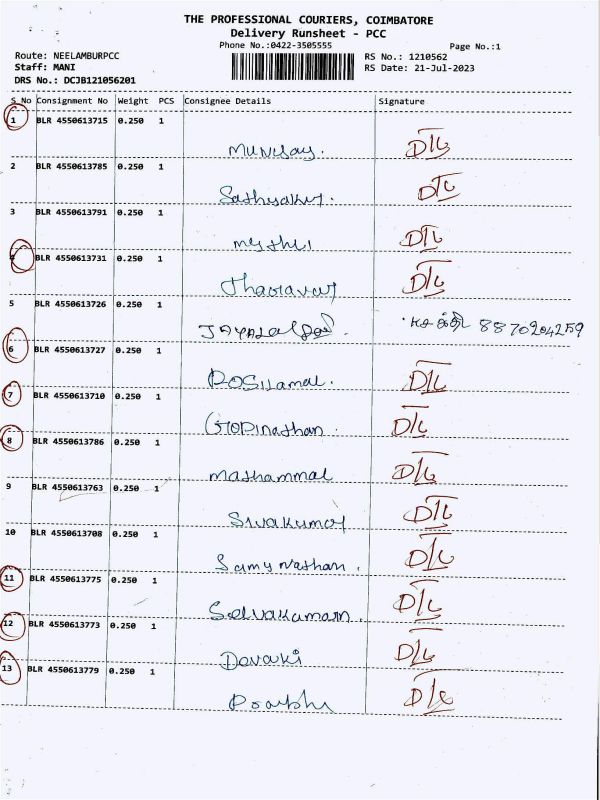 THE PROFESSIONAL COURIERS, COIMBATORE
Delivery Runsheet - PCC
Phone No.:0422-3505555 Page No.:1
Route: NEELAMBURPCC RS No.: 1210562
Staff: MANI RS Date: 21-Jul-2023
DRS No.: DCJB121056201
S No Consignment No Weight PCS Consignee Details Signature
1 BLR 4550613715 0.250 1
D/L
2 BLR 4550613785 0.250 1
D/L
3 BLR 4550613791 0.250 1
Mythli D/L
4 BLR 4550613731 0.250 1
D/L
5 BLR 4550613726 0.250 1
சக்தி 8870204259
6 BLR 4550613727 0.250 1
D/L
7 BLR 4550613710 0.250 1
Gopinathan. D/L
8 BLR 4550613786 0.250 1
Mathammal D/L
9 BLR 4550613763 0.250 1
Sivakumar D/L
10 BLR 4550613708 0.250 1
Samynathan. D/L
11 BLR 4550613775 0.250 1
D/L
12 BLR 4550613773 0.250 1
Devaki D/L
13 BLR 4550613779 0.250 1
Prabhu D/L